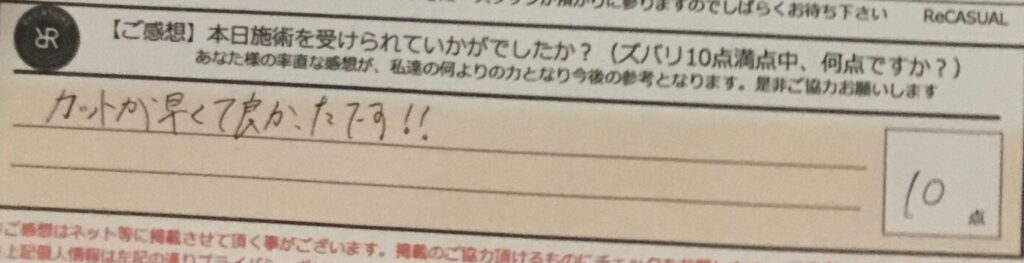 に参りますのでしばらくお待ち下さい ReCASUAL
【ご感想】本日施術を受けられていかがでしたか？（ズバリ10点満点中、何点ですか？）
あなた様の率直な感想が、私達の何よりの力となり今後の参考となります。是非ご協力お願いします
カットが早くて良かったです!!
10点
ご感想はネット等に掲載させて頂く事がございます。掲載のご協力頂けるものにチェックをお
上記個人情報は左記の通りプライバシー